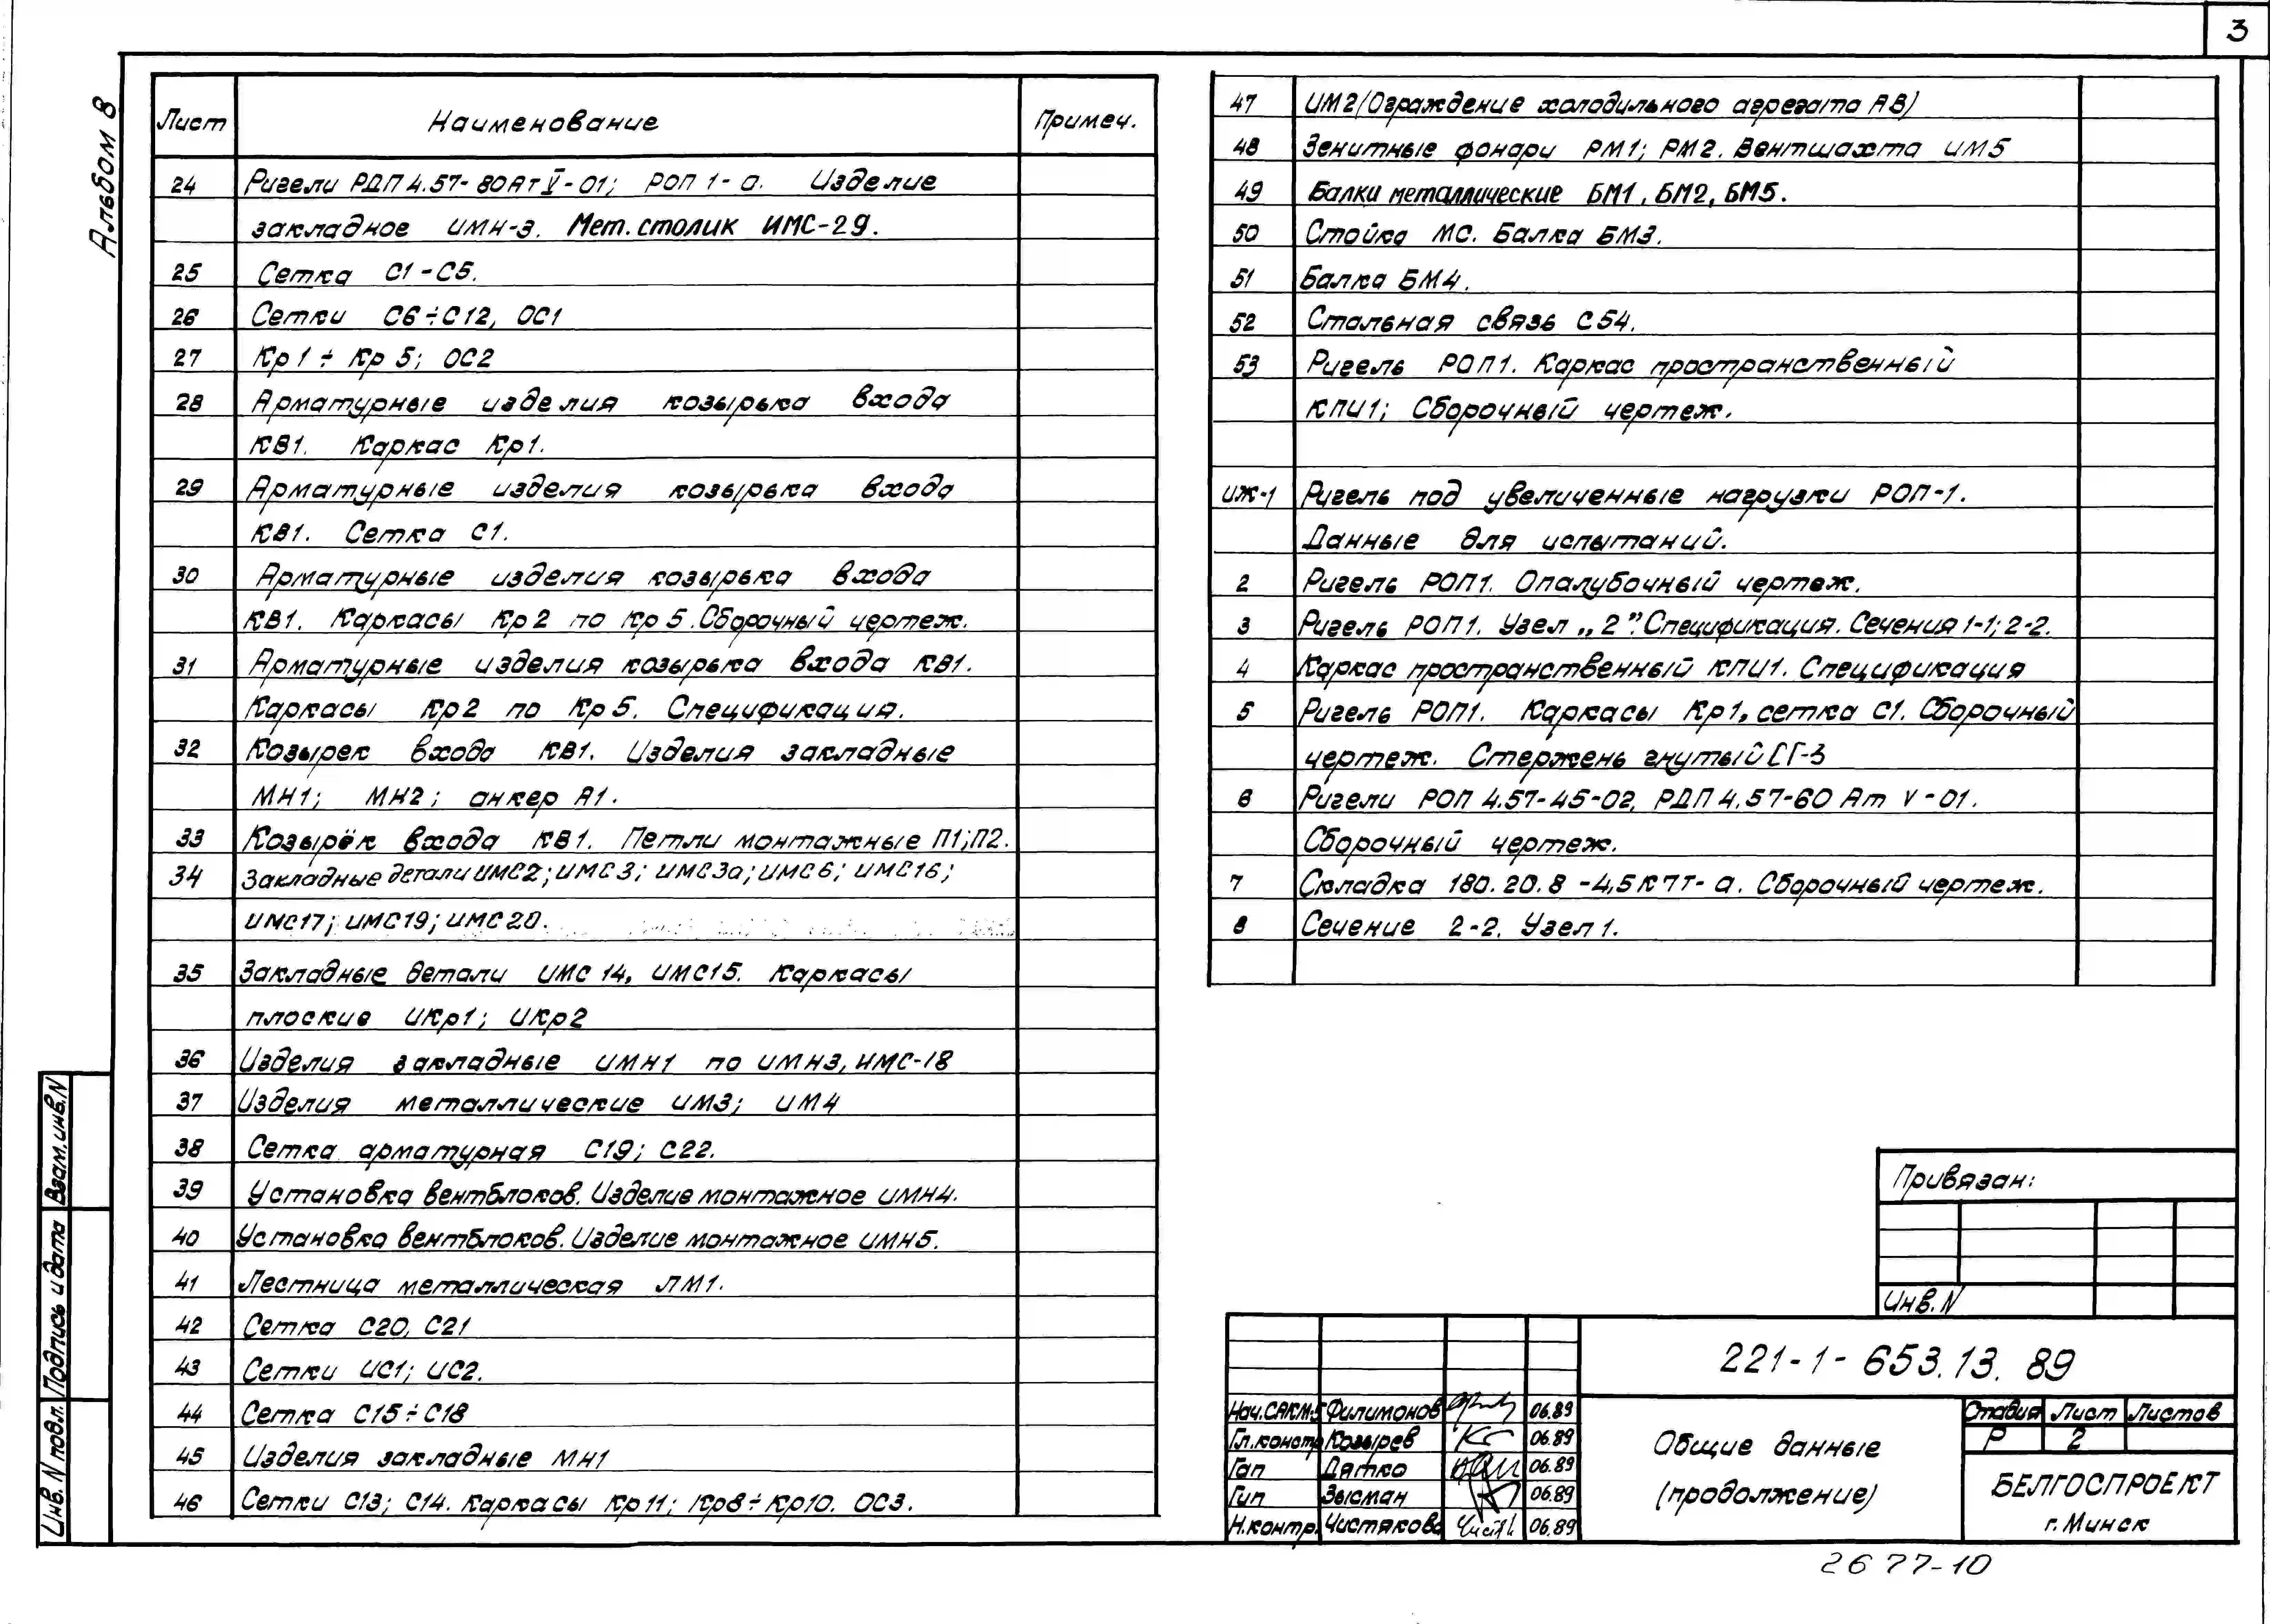 3
Альбом 8
Лист Наименование Примеч.
24 Ригели РДП 4.57-80АтV-01; РОП 1-а. Изделие
закладное ИМН-3. Мет. столик ИМС-29.
25 Сетка С1-С5.
26 Сетки С6÷С12, ОС1
27 Кр1÷Кр5; ОС2
28 Арматурные изделия козырька входа
КВ1. Каркас Кр1.
29 Арматурные изделия козырька входа
КВ1. Сетка С1.
30 Арматурные изделия козырька входа
КВ1. Каркасы Кр2 по Кр5. Сборочный чертеж.
31 Арматурные изделия козырька входа КВ1.
Каркасы Кр2 по Кр5. Спецификация.
32 Козырек входа КВ1. Изделия закладные
МН1; МН2; анкер А1.
33 Козырёк входа КВ1. Петли монтажные П1;П2.
34 Закладные детали ИМС2; ИМС3; ИМС3а; ИМС6; ИМС16;
ИМС17; ИМС19; ИМС20.
35 Закладные детали ИМС 14, ИМС15. Каркасы
плоские ИКр1; ИКр2
36 Изделия закладные ИМН1 по ИМН3, ИМС-18
37 Изделия металлические ИМ3; ИМ4
38 Сетка арматурная С19; С22.
39 Установка вентблоков. Изделие монтажное ИМН4.
40 Установка вентблоков. Изделие монтажное ИМН5.
41 Лестница металлическая ЛМ1.
42 Сетка С20, С21
43 Сетки ИС1; ИС2.
44 Сетка С15÷С18
45 Изделия закладные МН1
46 Сетки С13; С14. Каркасы Кр11; Кр8÷Кр10. ОС3.
47 ИМ2/Ограждение холодильного агрегата АВ)
48 Зенитные фонари РМ1; РМ2. Вентшахта ИМ5
49 Балки металлические БМ1, БМ2, БМ5.
50 Стойка МС. Балка БМ3.
51 Балка БМ4.
52 Стальная связь С54.
53 Ригель РОП1. Каркас пространственный
КПИ1; Сборочный чертеж.
ИЖ-1 Ригель под увеличенные нагрузки РОП-1.
Данные для испытаний.
2 Ригель РОП1. Опалубочный чертеж.
3 Ригель РОП1. Узел „2”. Спецификация. Сечения 1-1; 2-2.
4 Каркас пространственный КПИ1. Спецификация
5 Ригель РОП1. Каркасы Кр1, сетка С1. Сборочный
чертеж. Стержень гнутый СГ-3
6 Ригели РОП 4.57-45-02, РДП 4.57-60 Ат V-01.
Сборочный чертеж.
7 Складка 180.20.8 -4,5К7Т-а. Сборочный чертеж.
8 Сечение 2-2. Узел 1.
Привязан:
Инв.N
221-1-653.13.89
Нач.САКМ-5 Филимонов 06.89
Гл.констр Козырев 06.89
Гап Дятко 06.89
Гип Зысман 06.89
Н.контр. Чистякова 06.89
Общие данные
(продолжение)
Стадия Лист Листов
Р 2
БЕЛГОСПРОЕКТ
г. Минск
Инв. N подл. Подпись и дата Взам.инв.N
2677-10